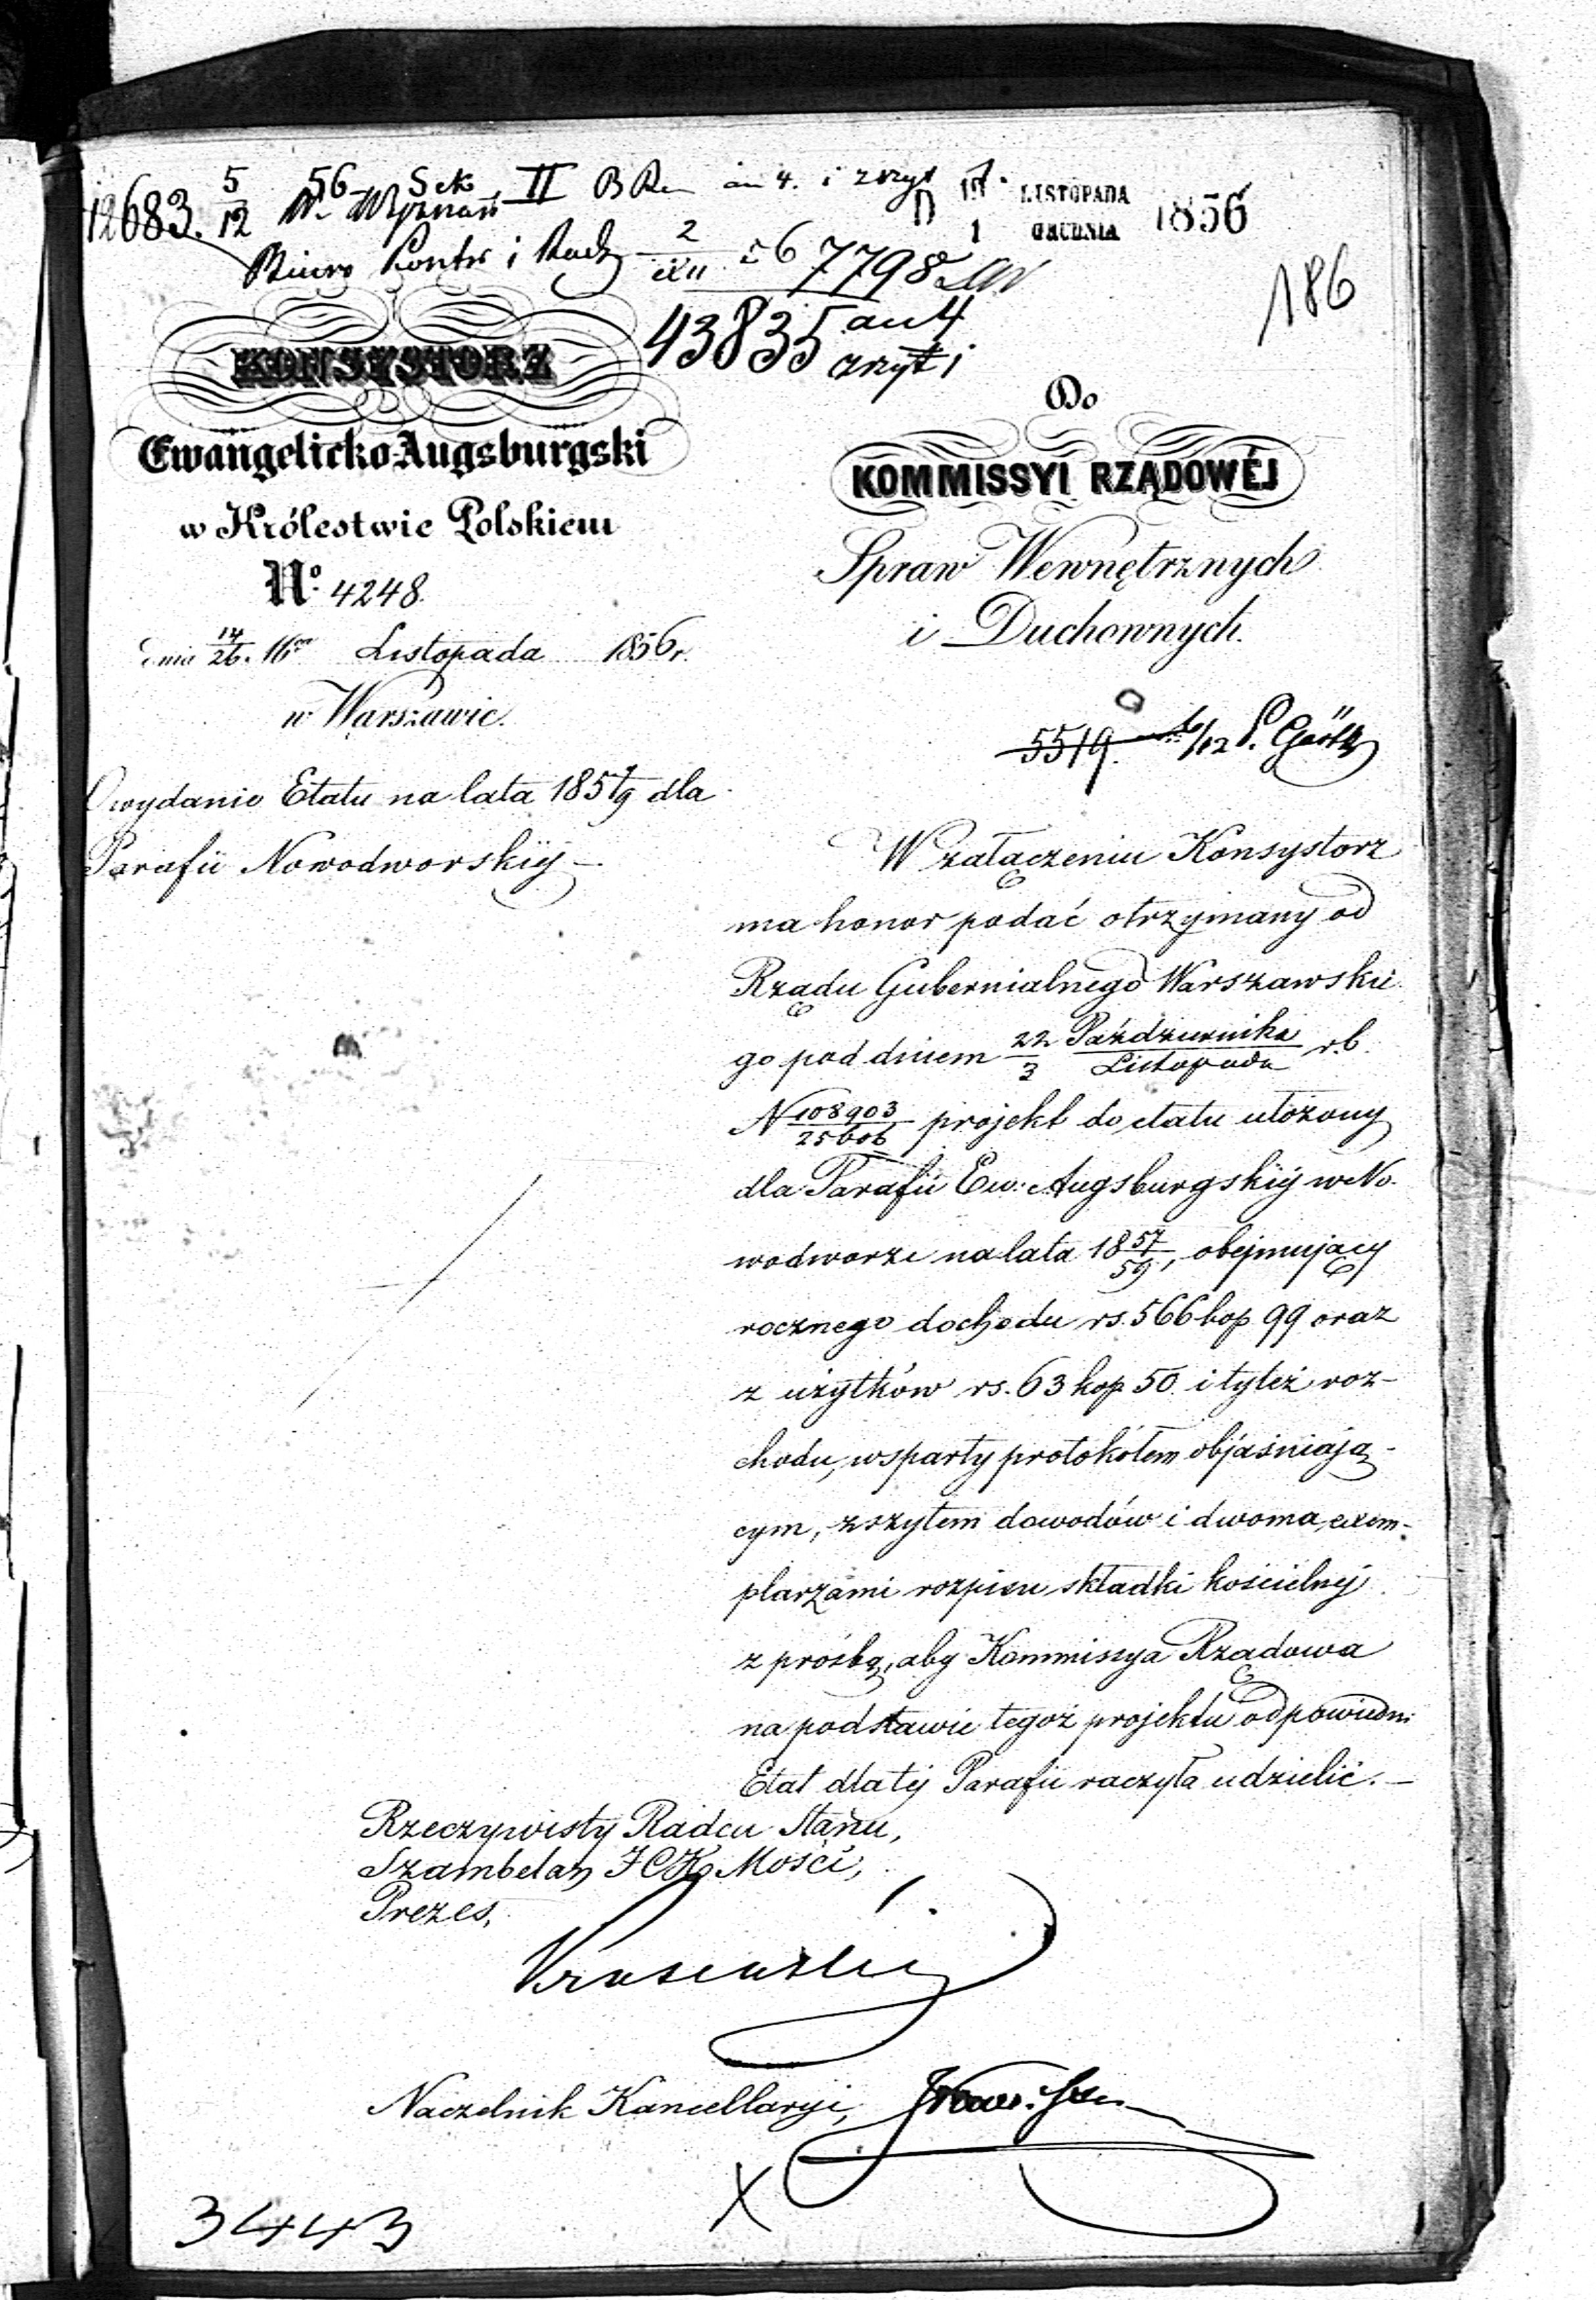 12683. 5/12 56 Sek. II
W. Wyznań an 4. i zszyt 1.
D 19 LISTOPADA
1 GRUDNIA 1856
Biuro Kontr i Rach 2/XII 56 7798
186
43835 an 4
zszyt i
KONSYSTORZ
Ewangelicko-Augsburgski
w Królestwie Polskiem
Nº 4248.
dnia 14/26. Listopada 1856 r.
w Warszawie.
O wydanie Etatu na lata 1857/9 dla
Parafii Nowodworskiéj –
Do
KOMMISSYI RZĄDOWÉJ
Spraw Wewnętrznych
i Duchownych.
5519. 6/12
W załączeniu Konsystorz
ma honor podać otrzymany od
Rządu Gubernialnego Warszawskie-
go pod dniem 22 Października/3 Listopada r.b.
N 108903/25606 projekt do etatu ułożony
dla Parafii Ew: Augsburgskiéj w No-
wodworze na lata 18 57/59, obejmujący
rocznego dochodu rs. 566 kop 99 oraz
z użytków rs. 63 kop 50 i tyleż roz-
chodu, wsparty protokółem objaśniają-
cym, zszytem dowodów i dwoma exem-
plarzami rozpisu składki kościelnéj
z prośbą, aby Kommissya Rządowa
na podstawie tegoż projektu odpowiedni
Etat dla téj Parafii raczyła udzielić. –
Rzeczywisty Radca Stanu,
Szambelan J C K Mości,
Prezes,
Naczelnik Kancellaryi,
3443